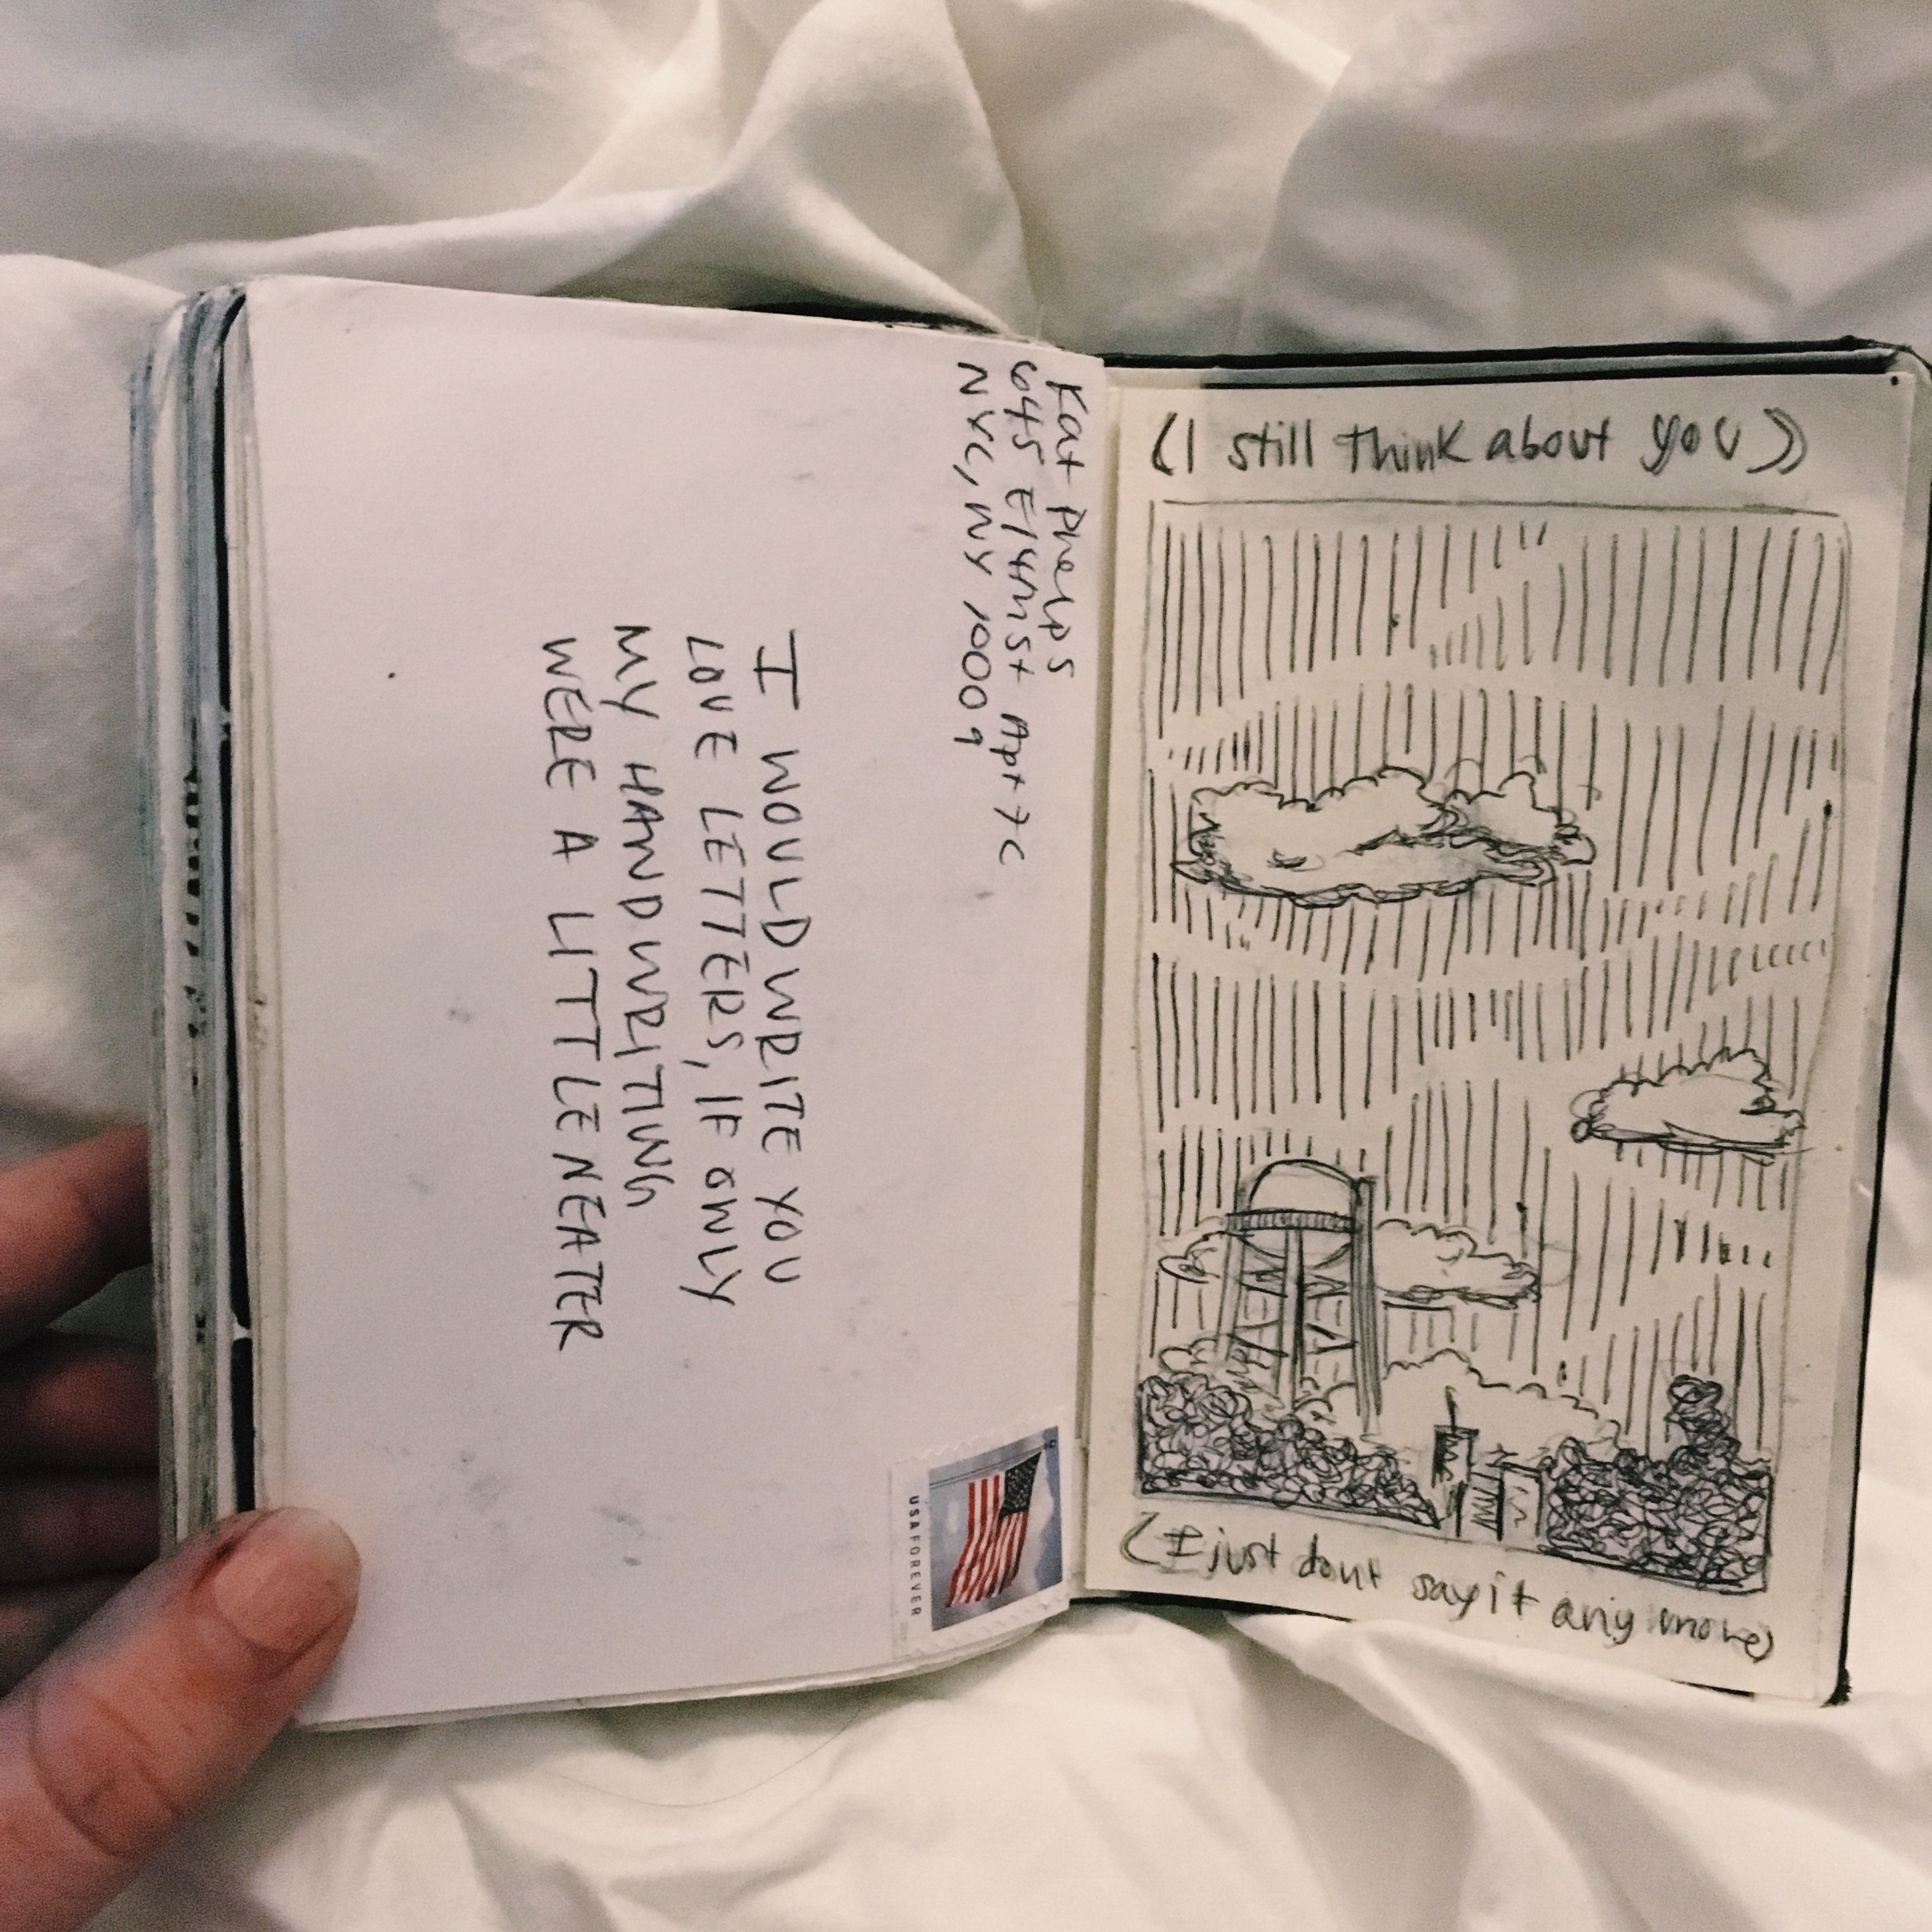 Kat Phelps
645 E 14th St Apt 7C
NYC, NY 10009
I WOULD WRITE YOU
LOVE LETTERS, IF ONLY
MY HANDWRITING
WERE A LITTLE NEATER
USA FOREVER
(I still think about you)
(I just dont say it any more)